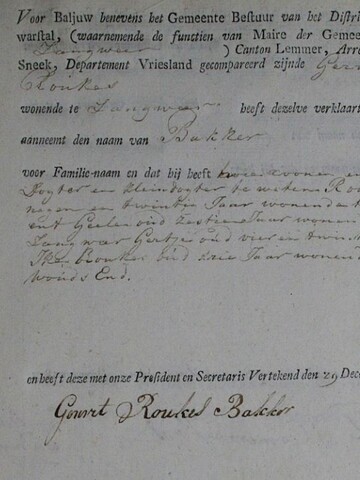 Voor Baljuw benevens het Gemeente Bestuur van het Distri
warstal, (waarnemende de functien van Maire der Gemee
Langweer ) Canton Lemmer, Arro
Sneek, Departement Vriesland gecompareerd zijnde Gerr
Roukes
wonende te Langweer heeft dezelve verklaart
aanneemt den naam van Bakker
voor Familie-naam en dat hij heeft twee zoonen en
Dogter en kleindogter te weten Rou
negen en twintig Jaar wonende te
oud zestien Jaar wonen
Langweer Geertje oud vier en twin
Roukes oud drie Jaar wonend
End.
en heeft deze met onze President en Secretaris Vertekend den 29 Dec
Geurt Roukes Bakker